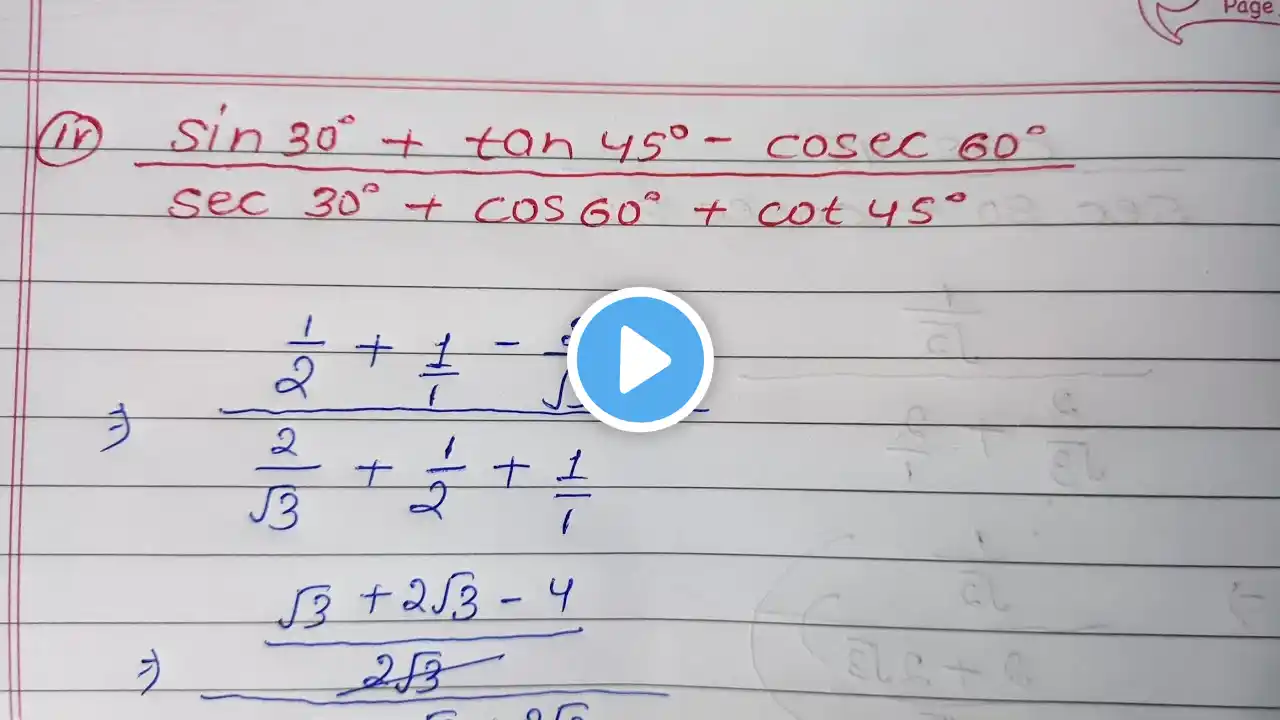 Page
iv sin 30° + tan 45° - cosec 60°
sec 30° + cos 60° + cot 45°
⇒ 1/2 + 1/1 -
2/√3 + 1/2 + 1/1
⇒ √3 + 2√3 - 4
2√3